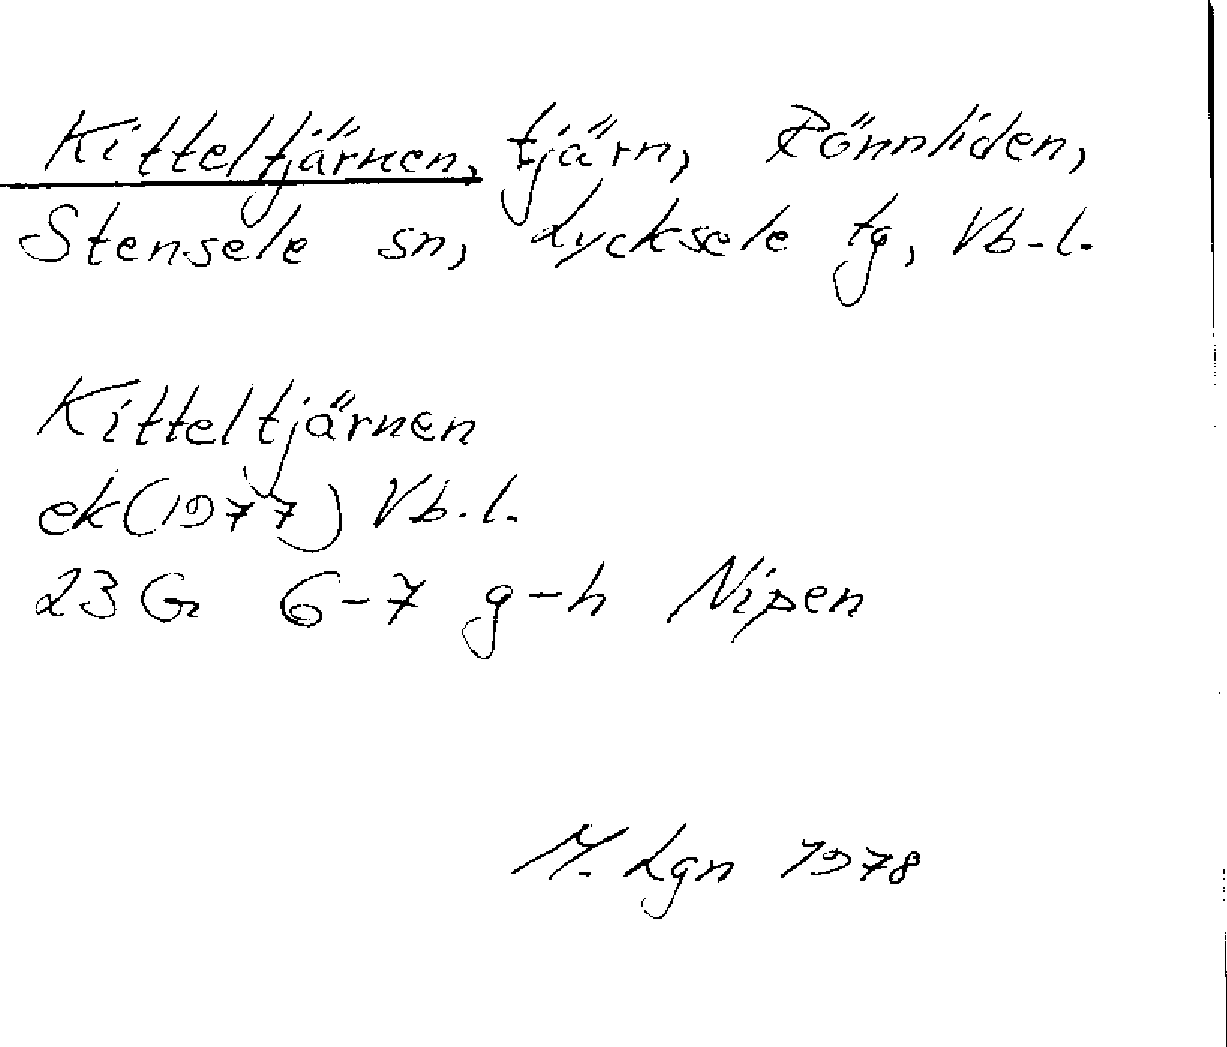 Kitteltjärnen, tjärn, Rönnliden,
Stensele sn, Lycksele tg, Vb-l.
Kitteltjärnen
ek(1977) Vb.l.
23G 6-7 g-h Nipen
M. Lgn 1978